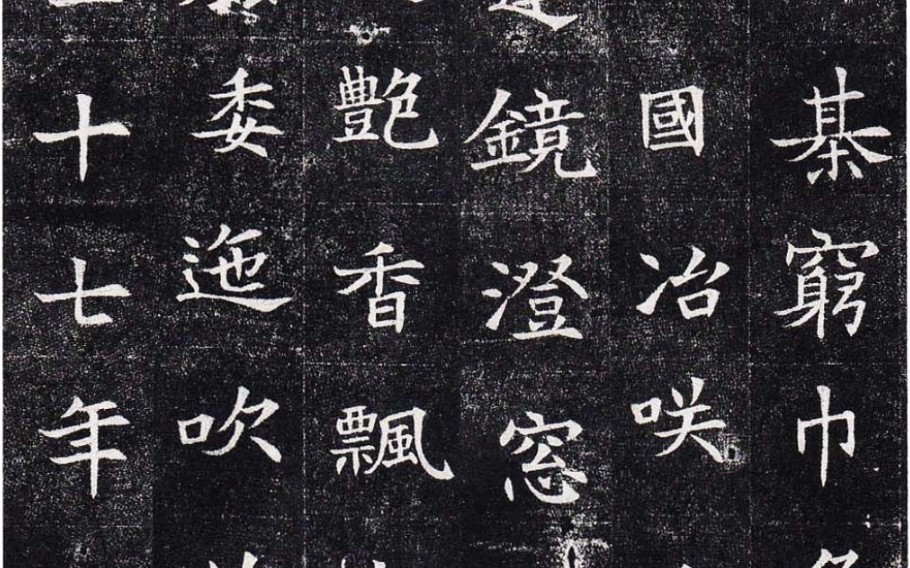 棊窮巾
國冶咲
鏡澄窓
艷香飄
委迤吹
十七年